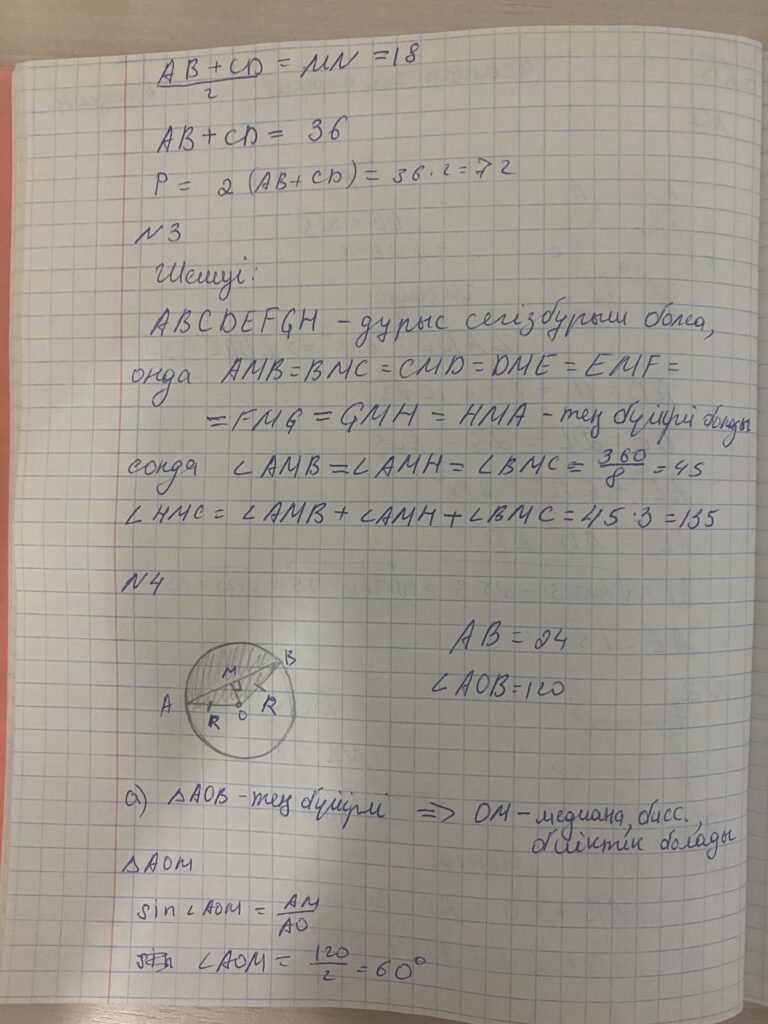 AB + CD / 2 = MN = 18
AB + CD = 36
P = 2 (AB + CD) = 36 · 2 = 72
N3
Шешуі:
ABCDEFGH – дұрыс сегізбұрыш болса,
онда AMB = BMC = CMD = DME = EMF =
= FMG = GMH = HMA – тең бүйірлі болады
сонда ∠AMB = ∠AMH = ∠BMC = 360/8 = 45
∠HMC = ∠AMB + ∠AMH + ∠BMC = 45 · 3 = 135
N4
AB = 24
∠AOB = 120
A M B
R O R
a) △AOB – тең бүйірлі ⇒ OM – медиана, бисс.,
биіктік болады
△AOM
sin ∠AOM = AM/AO
∠AOM = 120/2 = 60°